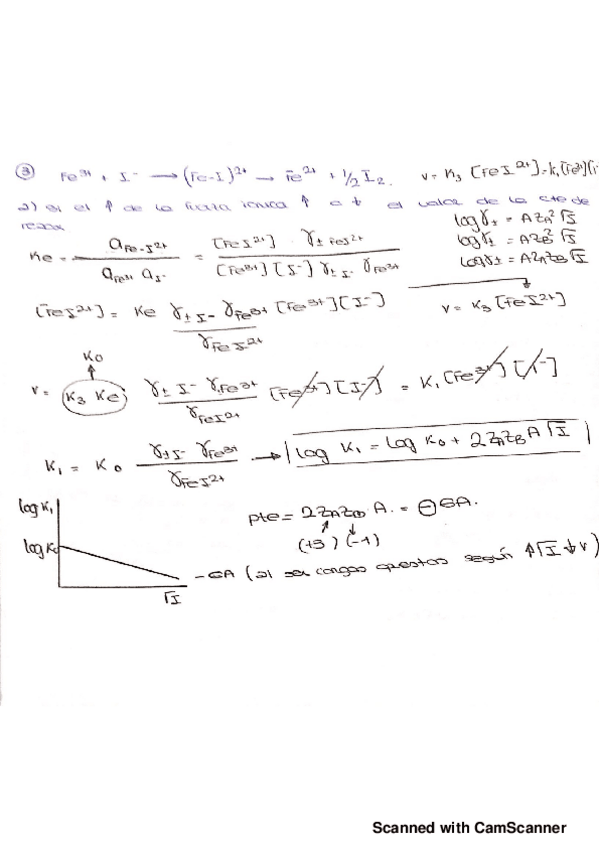 ③ Fe³⁺ + I⁻ → (Fe-I)²⁺ → Fe²⁺ + 1/2 I₂. v = K₃ [FeI²⁺] = k₁ [Fe³⁺][I
a) si el ↑ de la fuerza iónica ↑ o ↓ el valor de la cte de
log γ± = A Z_A² √I
reacc
log γ± = A Z_B² √I
log γ± = A Z_A Z_B √I
Ke = a_Fe-I²⁺ / a_Fe³⁺ a_I⁻ = [FeI²⁺] γ± FeI²⁺ / [Fe³⁺][I⁻] γ± I⁻ γFe³⁺
[FeI²⁺] = Ke γ± I⁻ γFe³⁺ / γFeI²⁺ [Fe³⁺][I⁻]
v = K₃ [FeI²⁺]
K₀
v = K₃ Ke γ± I⁻ γFe³⁺ / γFeI²⁺ [Fe³⁺][I⁻] = K₁ [Fe³⁺][I⁻]
K₁ = K₀ γ± I⁻ γFe³⁺ / γFeI²⁺ → log K₁ = log K₀ + 2 Z_A Z_B A √I
log K₁
pte = 2 Z_A Z_B A. = ⊖6A.
log K₀
(+3) (-1)
-6A (al ser cargas opuestas según ↑√I ↓v)
√I
Scanned with CamScanner